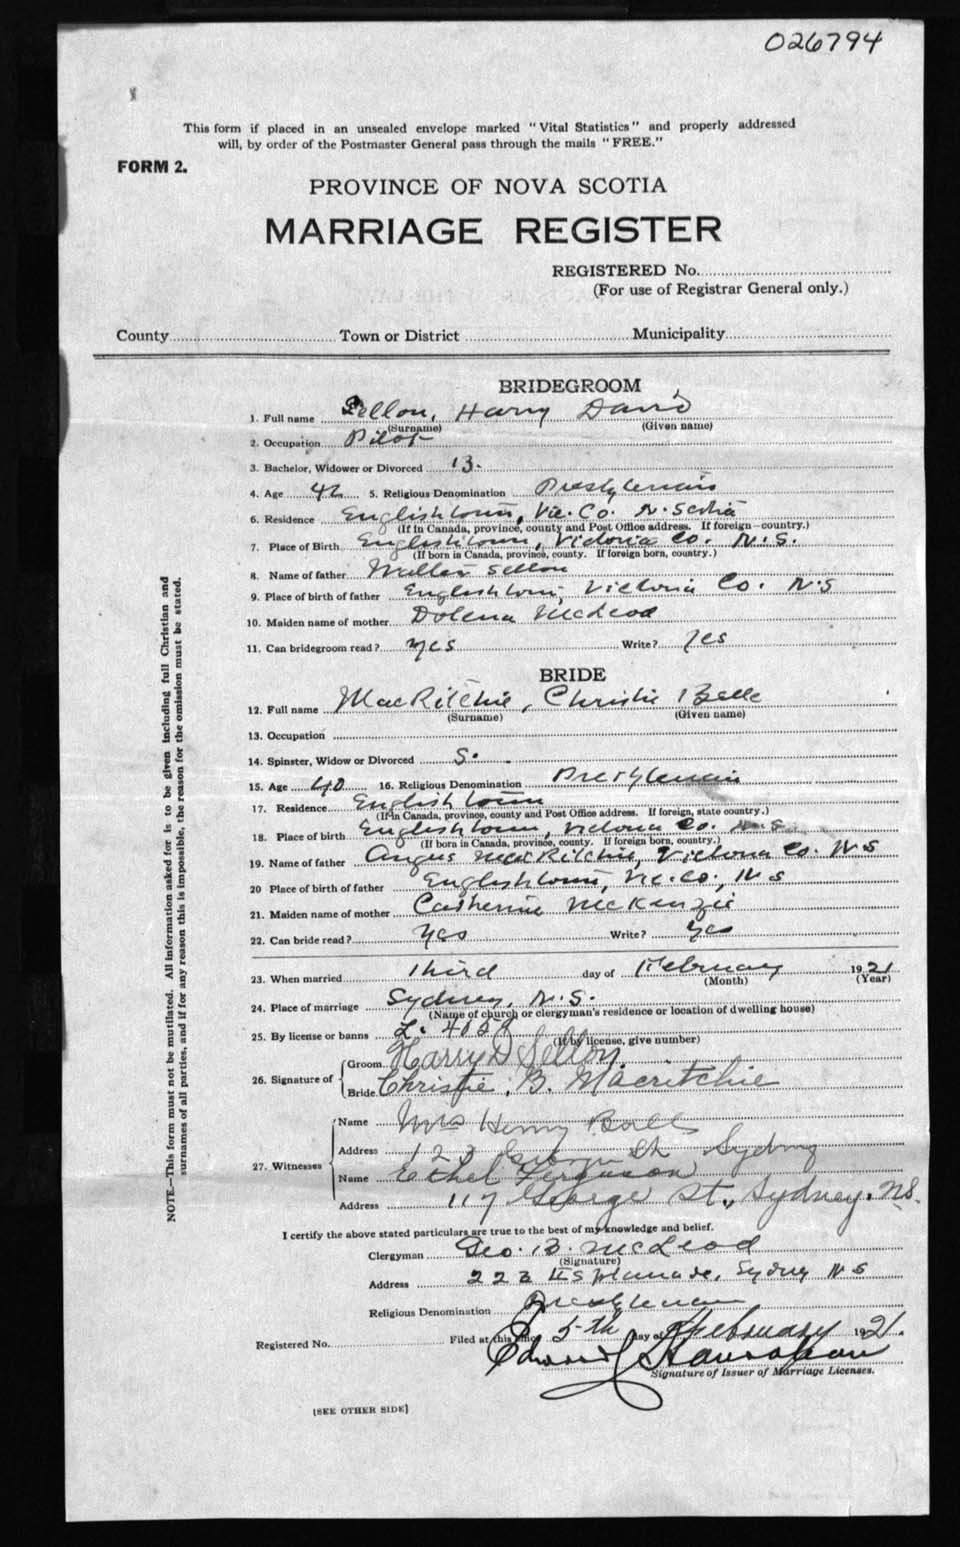 026794
This form if placed in an unsealed envelope marked "Vital Statistics" and properly addressed
will, by order of the Postmaster General pass through the mails "FREE."
FORM 2.
PROVINCE OF NOVA SCOTIA
MARRIAGE REGISTER
REGISTERED No.
(For use of Registrar General only.)
County Town or District Municipality
BRIDEGROOM
1. Full name Sellon, Harry David
(Surname) (Given name)
2. Occupation Pilot
3. Bachelor, Widower or Divorced B.
4. Age 42 5. Religious Denomination Presbyterian
6. Residence Englishtown, Vic. Co. N. Scotia
(If in Canada, province, county and Post Office address. If foreign—country.)
7. Place of Birth Englishtown, Victoria Co. N.S.
(If born in Canada, province, county. If foreign born, country.)
8. Name of father Sellon
9. Place of birth of father Englishtown, Victoria Co. N.S
10. Maiden name of mother Dolena McLeod
11. Can bridegroom read? yes Write? yes
BRIDE
12. Full name MacRitchie, Christie Belle
(Surname) (Given name)
13. Occupation
14. Spinster, Widow or Divorced S.
15. Age 40 16. Religious Denomination Presbyterian
17. Residence Englishtown
(If in Canada, province, county and Post Office address. If foreign, state country.)
18. Place of birth Englishtown, Victoria Co. N.S.
(If born in Canada, province, county. If foreign born, country.)
19. Name of father Angus MacRitchie, Victoria Co. N S
20 Place of birth of father Englishtown, Vic. Co., N S
21. Maiden name of mother Catherine McKenzie
22. Can bride read? yes Write? yes
23. When married Third day of February 1921
(Month) (Year)
24. Place of marriage Sydney, N.S.
(Name of church or clergyman's residence or location of dwelling house)
25. By license or banns L.
(If by license, give number)
26. Signature of
Groom Harry D Sellon
Bride Christie. B. Macritchie
27. Witnesses
Name Mrs Henry
Address 123 St Sydney
Name Ethel Ferguson
Address 117 George St., Sydney. N.S.
I certify the above stated particulars are true to the best of my knowledge and belief.
Clergyman Geo. B. McLeod
(Signature)
Address Esplanade, Sydney N S
Religious Denomination Presbyterian
Registered No. Filed at this office 5th day of February 1921.
Signature of Issuer of Marriage Licenses.
[SEE OTHER SIDE]
NOTE.—This form must not be mutilated. All information asked for is to be given including full Christian and
surnames of all parties, and if for any reason this is impossible, the reason for the omission must be stated.